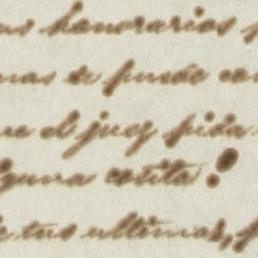 us honorarios
nas se puede co
re el juez pida
guna cosita
de tus ultimas,